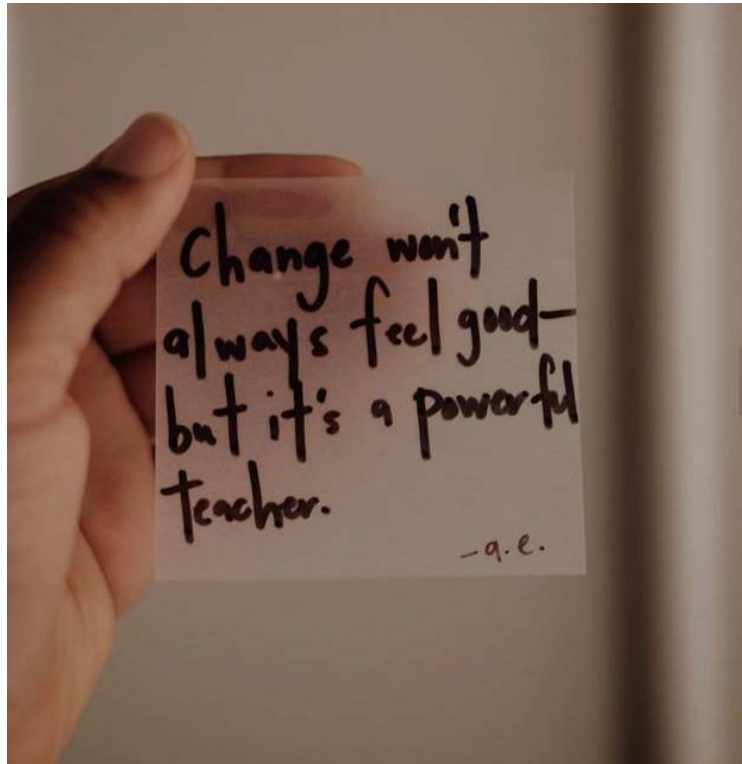 Change won't
always feel good—
but it's a powerful
teacher.
-a.e.